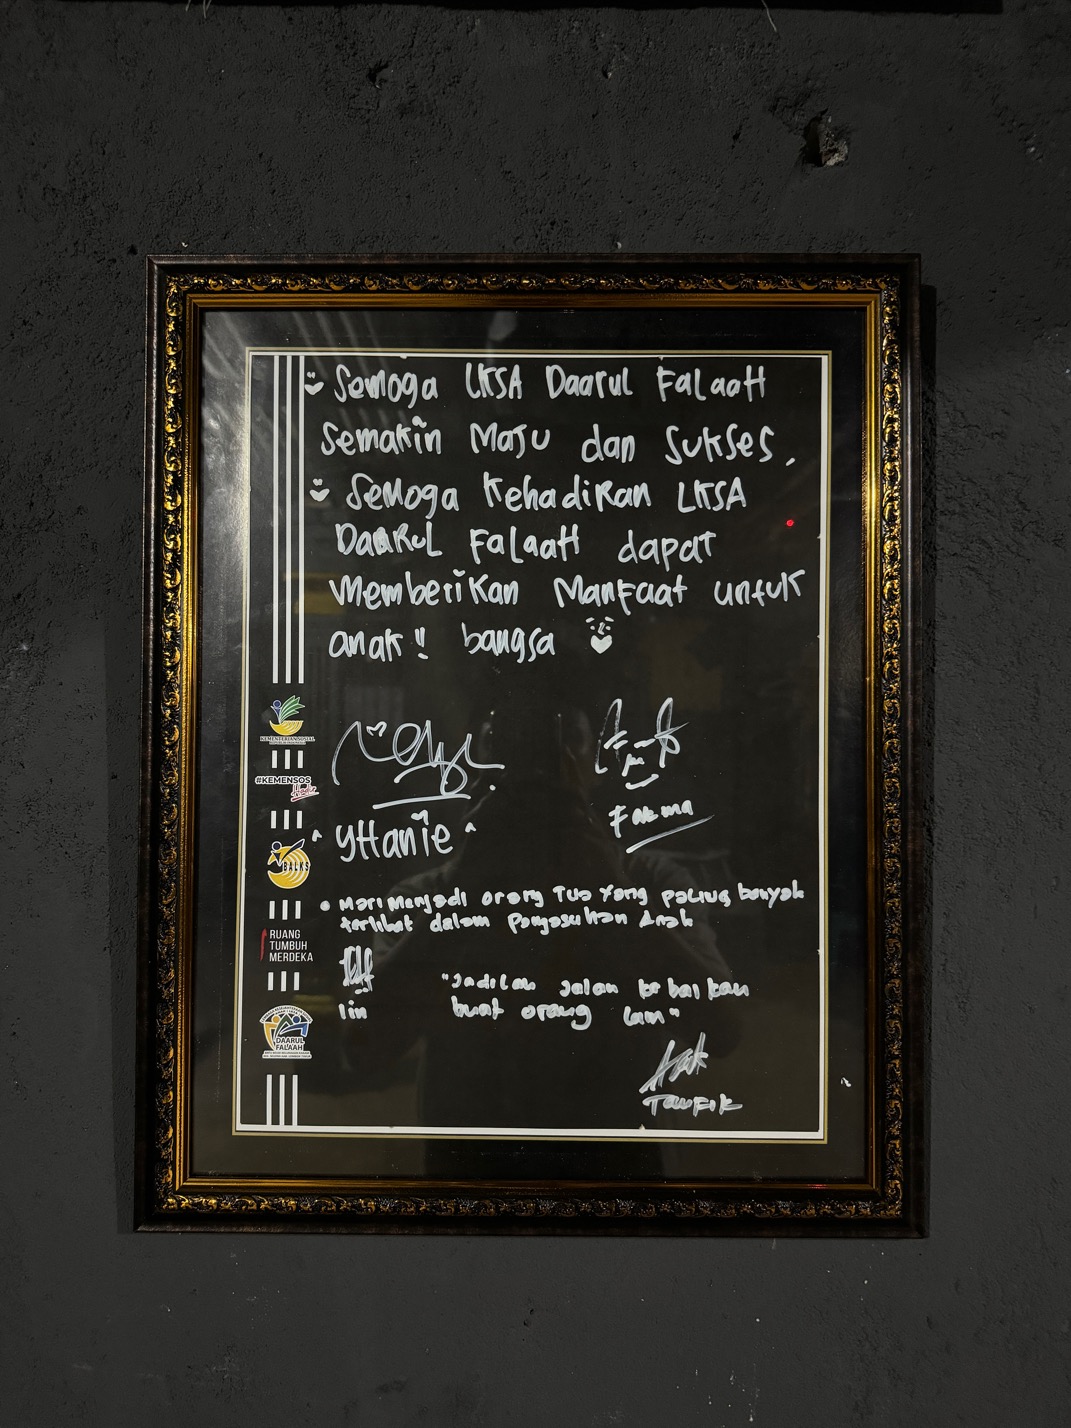 Semoga LKSA Daarul Falaah
Semakin Maju dan Sukses.
Semoga Kehadiran LKSA
Daarul Falaah dapat
Memberikan Manfaat untuk
anak" bangsa
KEMENTERIAN SOSIAL
#KEMENSOS
Hadir
"YHanie"
Fatma
BALKS
• Mari Menjadi orang Tua Yang paling banyak
terlibat dalam Pengasuhan Anak
RUANG
TUMBUH
MERDEKA
Iin
"Jadilah jalan kebaikan
buat orang lain"
DAARUL
FALAAH
Taufik